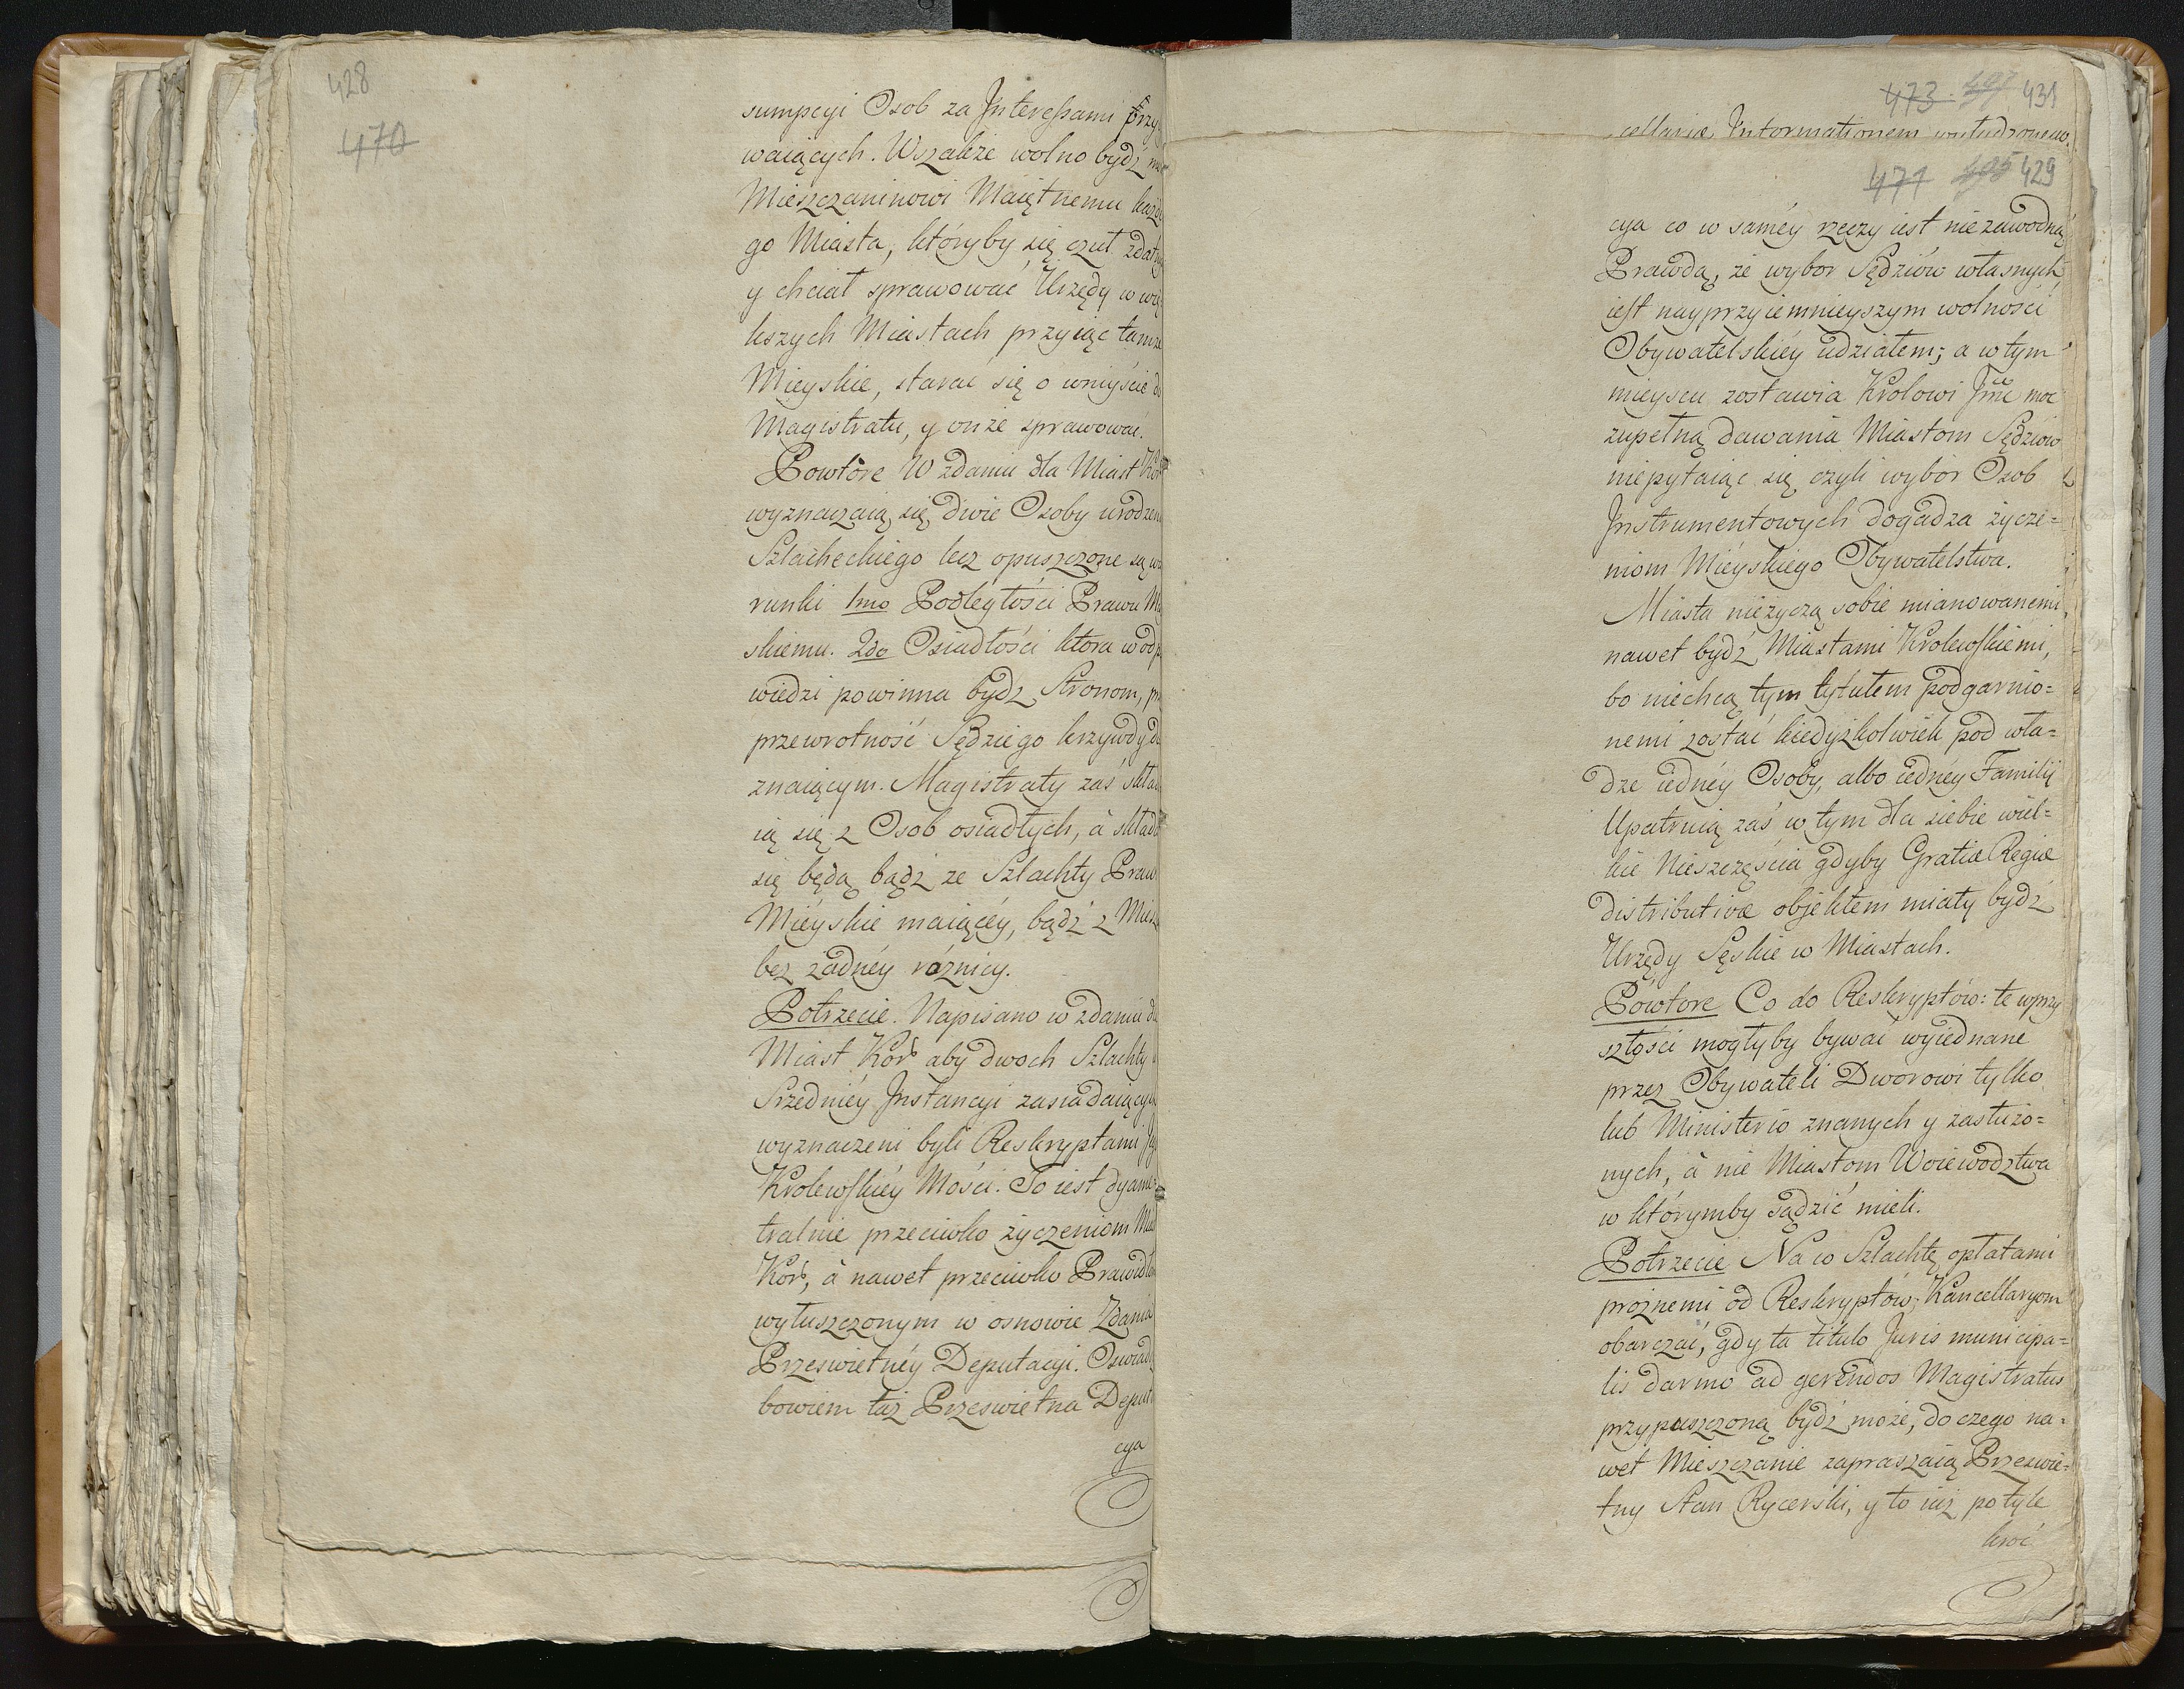 428
470
sumpcyi Osob za Interessami przy
waiących. Wszakże wolno bydź
Mieszczaninowi Maiętnemu każde
go Miasta, któryby się czuł zdatny
y chciał sprawować Urzędy w wię
kszych Miastach przyiąć tamże
Mieyskie, starać się o wniyście do
Magistratu, y onże sprawować.
Powtóre W zdaniu dla Miast Kor
wyznaczaią się dwie Osoby urodzen
Szlacheckiego lecz opuszczone są wa
runki 1mo Podległości Prawu
skiemu. 2do Osiadłości ktora w odp
wiedzi powinna bydź Stronom,
przewrotność Sędziego krzywdy do
znaiącym. Magistraty zaś skład
ią się z Osob osiadłych, à składa
się będą bądź ze Szlachty Praw
Mieyskie maiącéy, bądź z Miesz
bez żadnéy róznicy.
Potrzecie. Napisano w zdaniu
Miast Kor aby dwoch Szlachty
Srzedniéy Instancyi zasiadaiący
wyznaczeni byli Reskryptami
Krolewskiéy Mości. To iest dyame
tralnie przeciwko życzeniom
Kor, à nawet przeciwko Prawidł
wyłuszczonym w osnowie Zdania
Prześwietnéy Deputacyi. Oswiad
bowiem taż Prześwietna Deput
cya
473 431
cellariæ Informationem
471 495 429
cya co w saméy rzeczy iest niezawodną
Prawdą, że wybor Sędziow własnych,
iest nayprzyiemnieyszym wolności
Obywatelskiéy udziałem; a w tym
mieyscu zostawia Krolowi Jmci moc
zupełną dawania Miastom Sędziow
niepytaiąc się czyli wybór Osob
Instrumentowych dogadza życze=
niom Mieyskiego Obywatelstwa.
Miasta nieżyczą sobie mianowanemi
nawet bydź Miastami Krolewskiemi,
bo niechcą tym tytułem podgarnio=
nemi zostać kiedyżkolwiek pod wła=
dze iednéy Osoby, albo iednéy Familij
Upatruią zaś w tym dla siebie wiel=
kie Nieszczęścia gdyby Gratiæ Regiæ
distributivæ objektem miały bydź
Urzędy Sęskie w Miastach.
Powtore Co do Reskryptów: te wprzy
szłości mogłyby bywać wyiednane
przez Obywateli Dworowi tylko
lub Ministerio znanych y zasłużo=
nych, à nie Miastom Woiewodztwa
w którymby sądzić mieli.
Potrzecie Na co Szlachtę opłatami
próżnemi od Reskryptów, Kancellaryom
obarczać, gdy ta titulo Juris municipa=
lis darmo ad gerendos Magistratus
przypuszczoną bydź może, do czego na=
wet Mieszczanie zapraszaią Prześwie=
tny Stan Rycerski, y to iuż po tyle
kroć